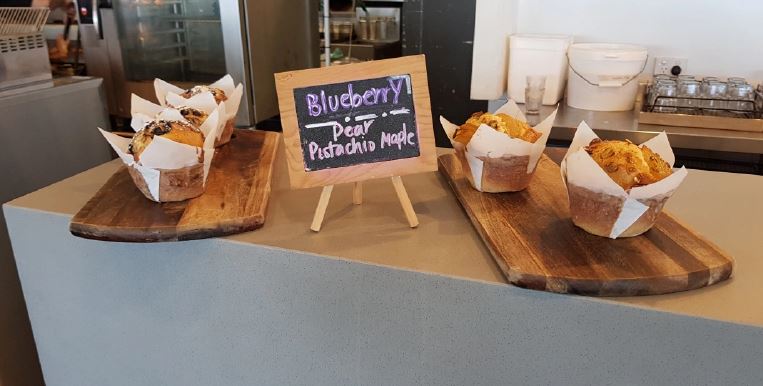 BlueberrY
Pear
Pistachio Maple